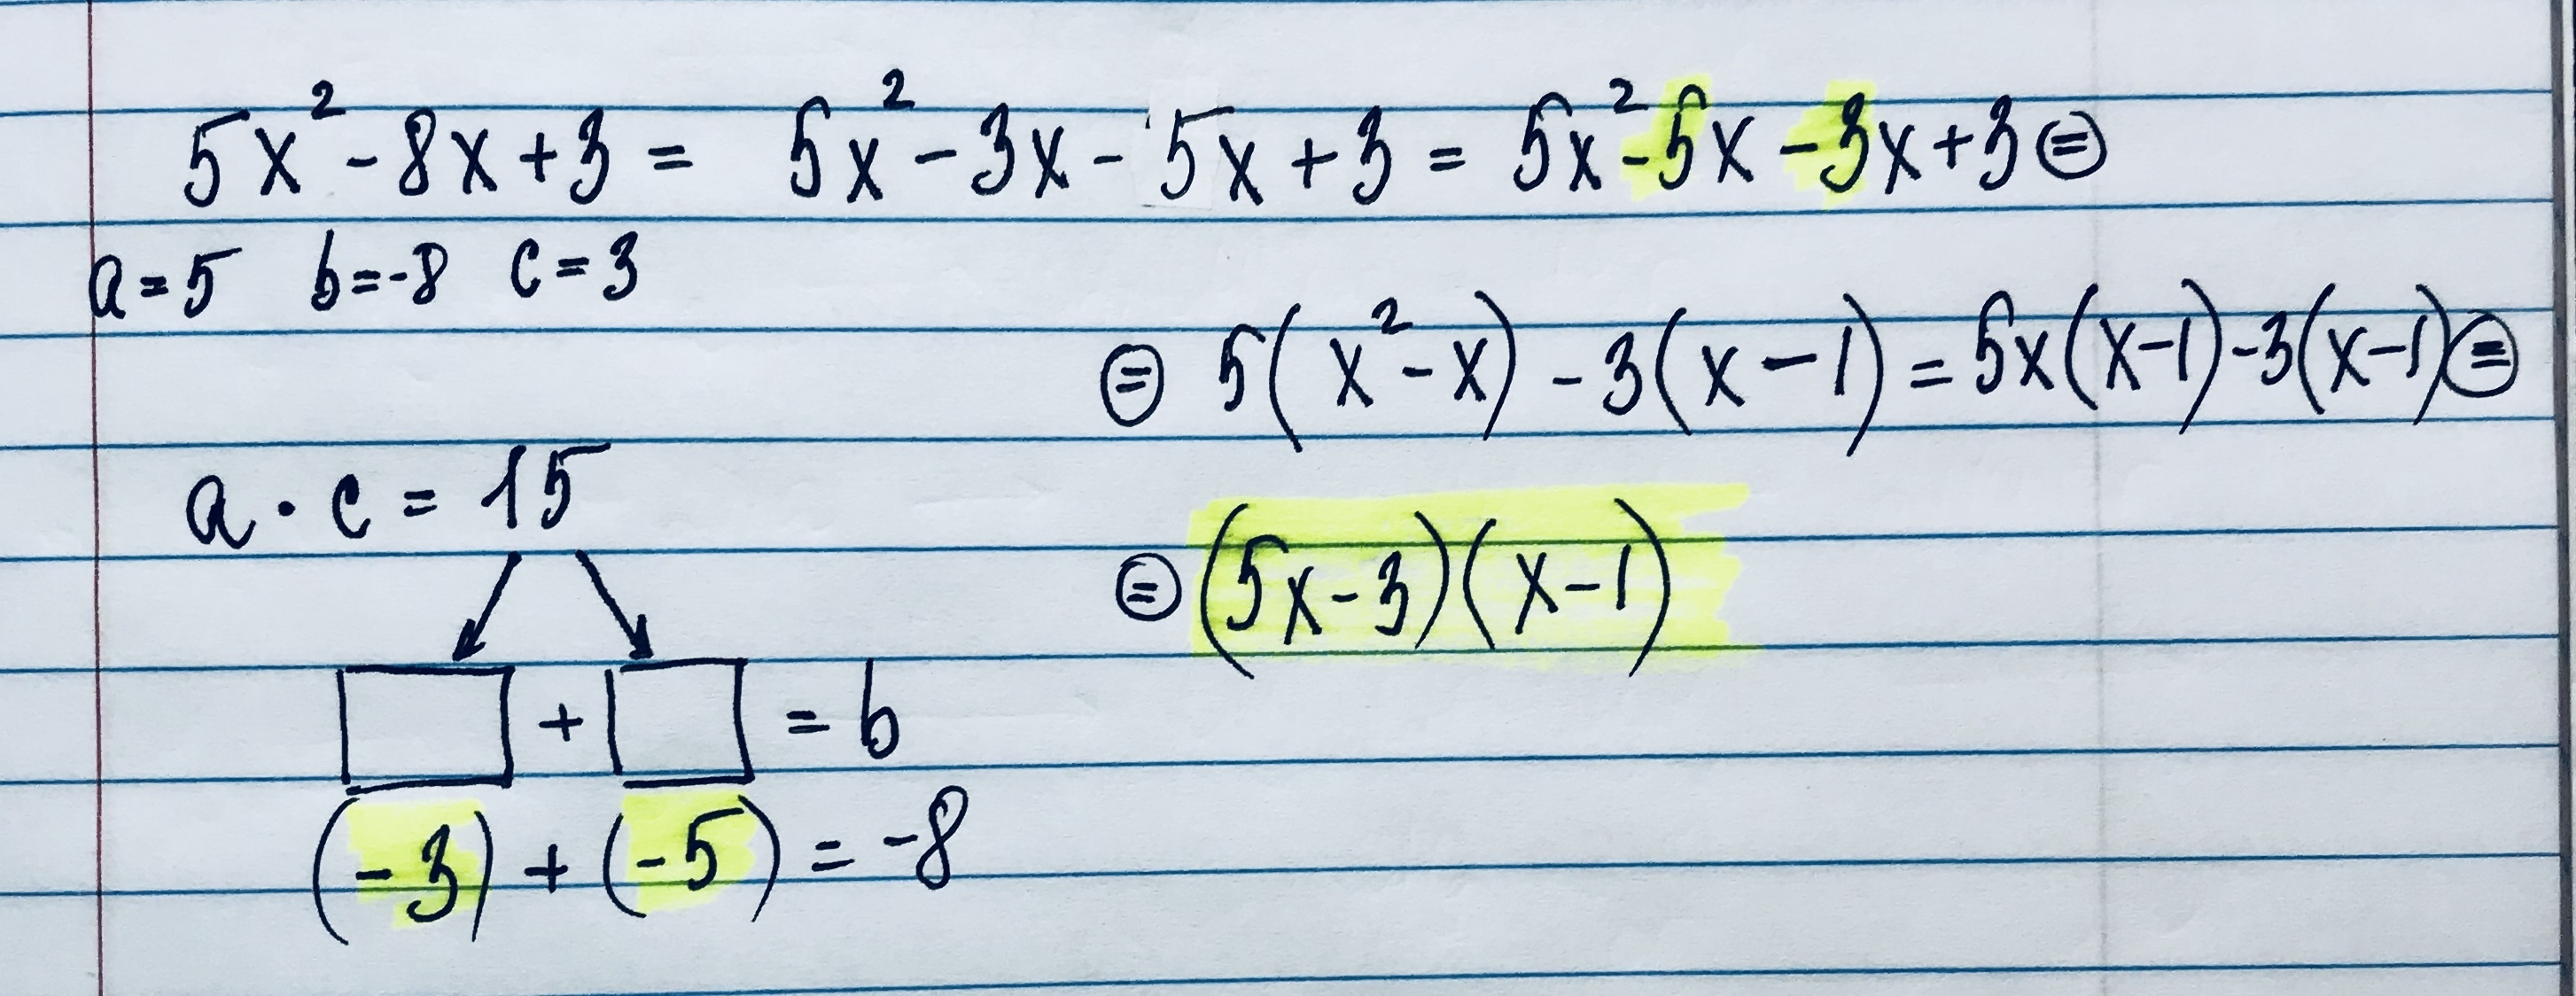 5x² - 8x + 3 = 5x² - 3x - 5x + 3 = 5x² - 5x - 3x + 3 ⊜
a = 5 b = -8 c = 3
⊜ 5(x² - x) - 3(x - 1) = 5x(x - 1) - 3(x - 1) ⊜
a · c = 15
⊜ (5x - 3)(x - 1)
□ + □ = b
(-3) + (-5) = -8